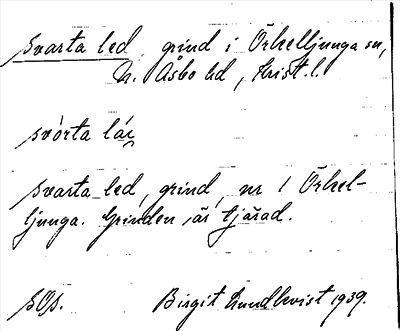 svarta led, grind i Örkelljunga sn,
N. Åsbo hd, Krist. l.
svarta led, grind, nr 1 Örkel-
ljunga. Grinden är tjärad.
Birgit Lundkvist 1939.